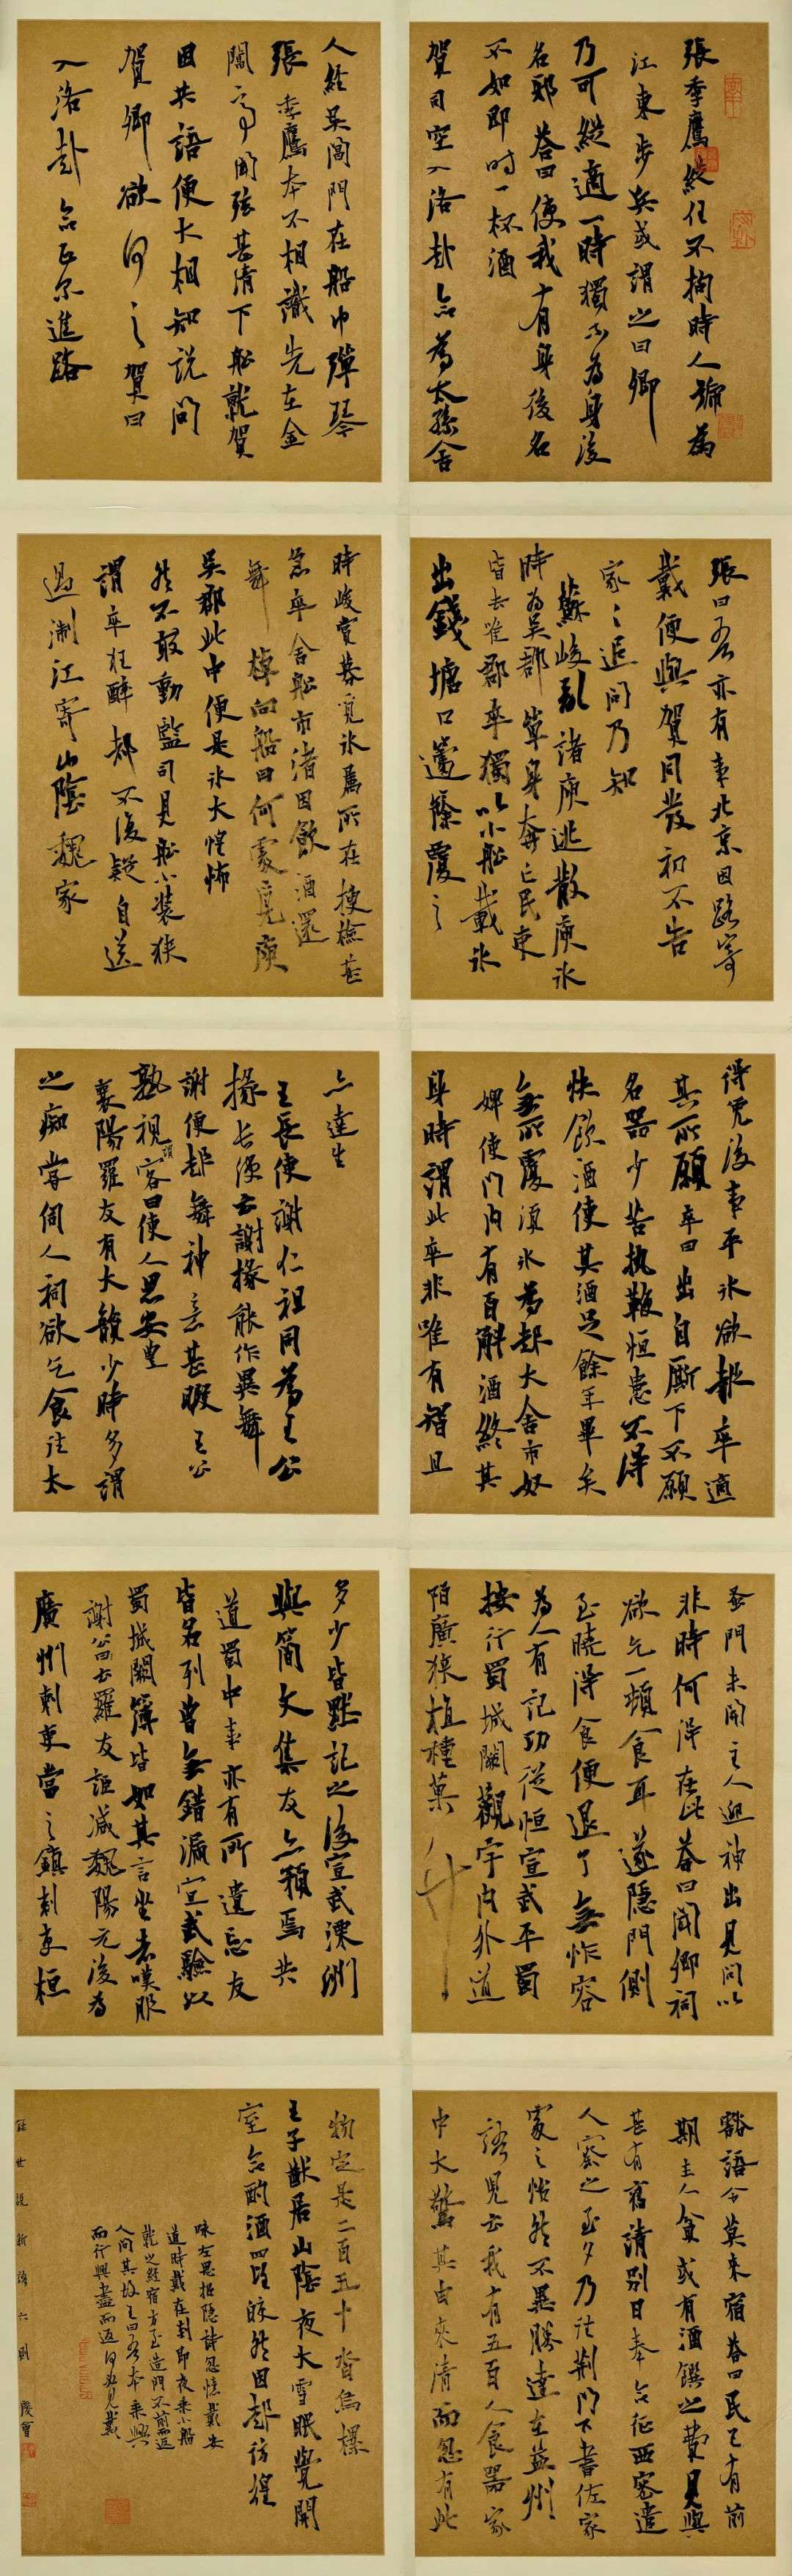 張季鷹縱任不拘時人號為
江東步兵或謂之曰卿
乃可縱適一時獨不為身後
名邪答曰使我有身後名
不如即時一杯酒
賀司空入洛赴命為太孫舍
人經吳閶門在船中彈琴
張季鷹本不相識先在金
閶亭聞絃甚清下船就賀
因共語便大相知說問
賀卿欲何之賀曰
入洛赴命正尔進路
張曰吾亦有事北京因路寄
載便與賀同發初不告
家家追問乃知
蘇峻亂諸庾逃散庾氷
時為吳郡單身奔亡民吏
皆去唯郡卒獨以小船載氷
出錢塘口蘧篨覆之
時峻賞募覓氷屬所在搜檢甚
急卒舍船市渚因飲酒還
舞棹向船曰何處覓庾
吳郡此中便是氷大惶怖
然不敢動監司見船小裝狹
謂卒狂醉都不復疑自送
過淛江寄山陰魏家
得免後事平氷欲報卒適
其所願卒曰出自厮下不願
名器少苦執鞭恒患不得
快飲酒使其酒足餘年畢矣
無所復須氷為起大舍市奴
婢使門內有百斛酒終其
身時謂此卒非唯有智且
亦達生
王長使謝仁祖同為王公
掾長使云謝掾能作異舞
謝便起舞神意甚暇王公
熟視謂客曰使人思安豐
襄陽羅友有大韻少時多謂
之痴嘗伺人祠欲乞食往太
蚤門未開主人迎神出見問以
非時何得在此答曰聞卿祠
欲乞一頓食耳遂隱門側
至曉得食便退了無怍容
為人有記功從恒宣武平蜀
按行蜀城闕觀宇內外道
陌廣狹植種菓竹
多少皆默記之後宣武溧洲
與簡文集友亦預焉共
道蜀中事亦有所遺忘友
皆名列曾無錯漏宣武驗以
蜀城闕簿皆如其言坐者嘆服
謝公曰云羅友詎減魏陽元後為
廣州刺史當之鎮刺史桓
豁語令莫來宿答曰民已有前
期主人貧或有酒饌之費見與
甚有舊請別日奉命征西密遣
人察之至夕乃往荊門下書佐家
處之怡然不異勝達在益州
語兒云我有五百人食器家
中大驚其由來清而忽有此
物定是二百五十沓烏樏
王子猷居山陰夜大雪眠覺開
室命酌酒四望皎然因起彷徨
咏左思招隱詩忽憶戴安
道時戴在剡即夜乘小船
就之經宿方至造門不前而返
人問其故王曰吾本乘興
而行興盡而返何必見戴
錄世說新語六則 慶會